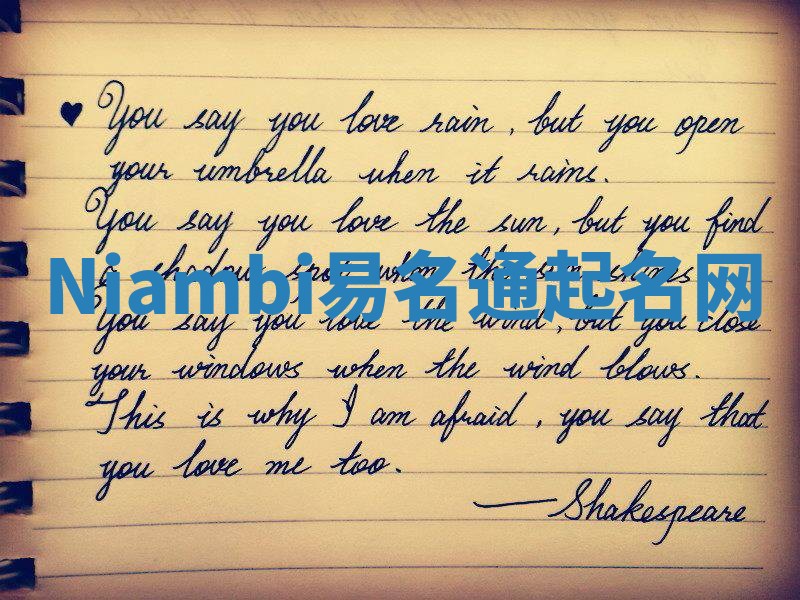 ♥ You say you love rain, but you open
your umbrella when it rains.
You say you love the sun, but you find
a shadow spot when the sun shines
Niambi易名通起名网
You say you love the wind, but you close
your windows when the wind blows.
This is why I am afraid, you say that
you love me too.
— Shakespeare